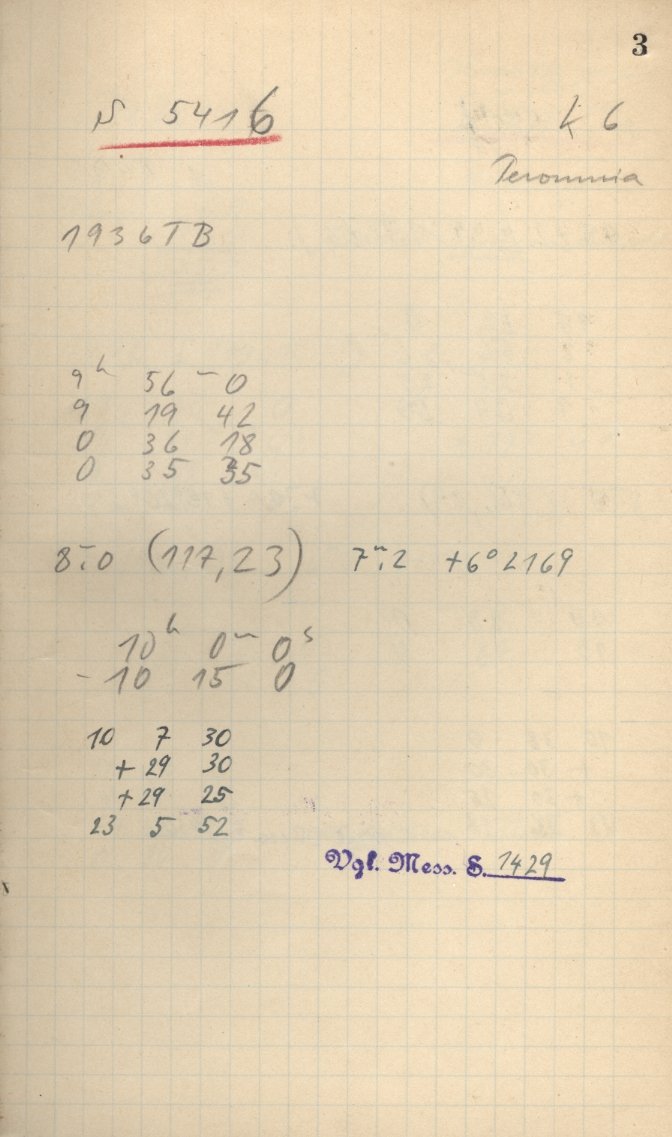 3
N 5416
K 6
1936 TB
9h 56m 0
9 19 42
0 36 18
0 35 35
8m.0 (117,23) 7m.2 +6°2169
10h 0m 0s
- 10 15 0
10 7 30
+ 29 30
+ 29 25
23 5 52
Vgl. Mess. S. 1429